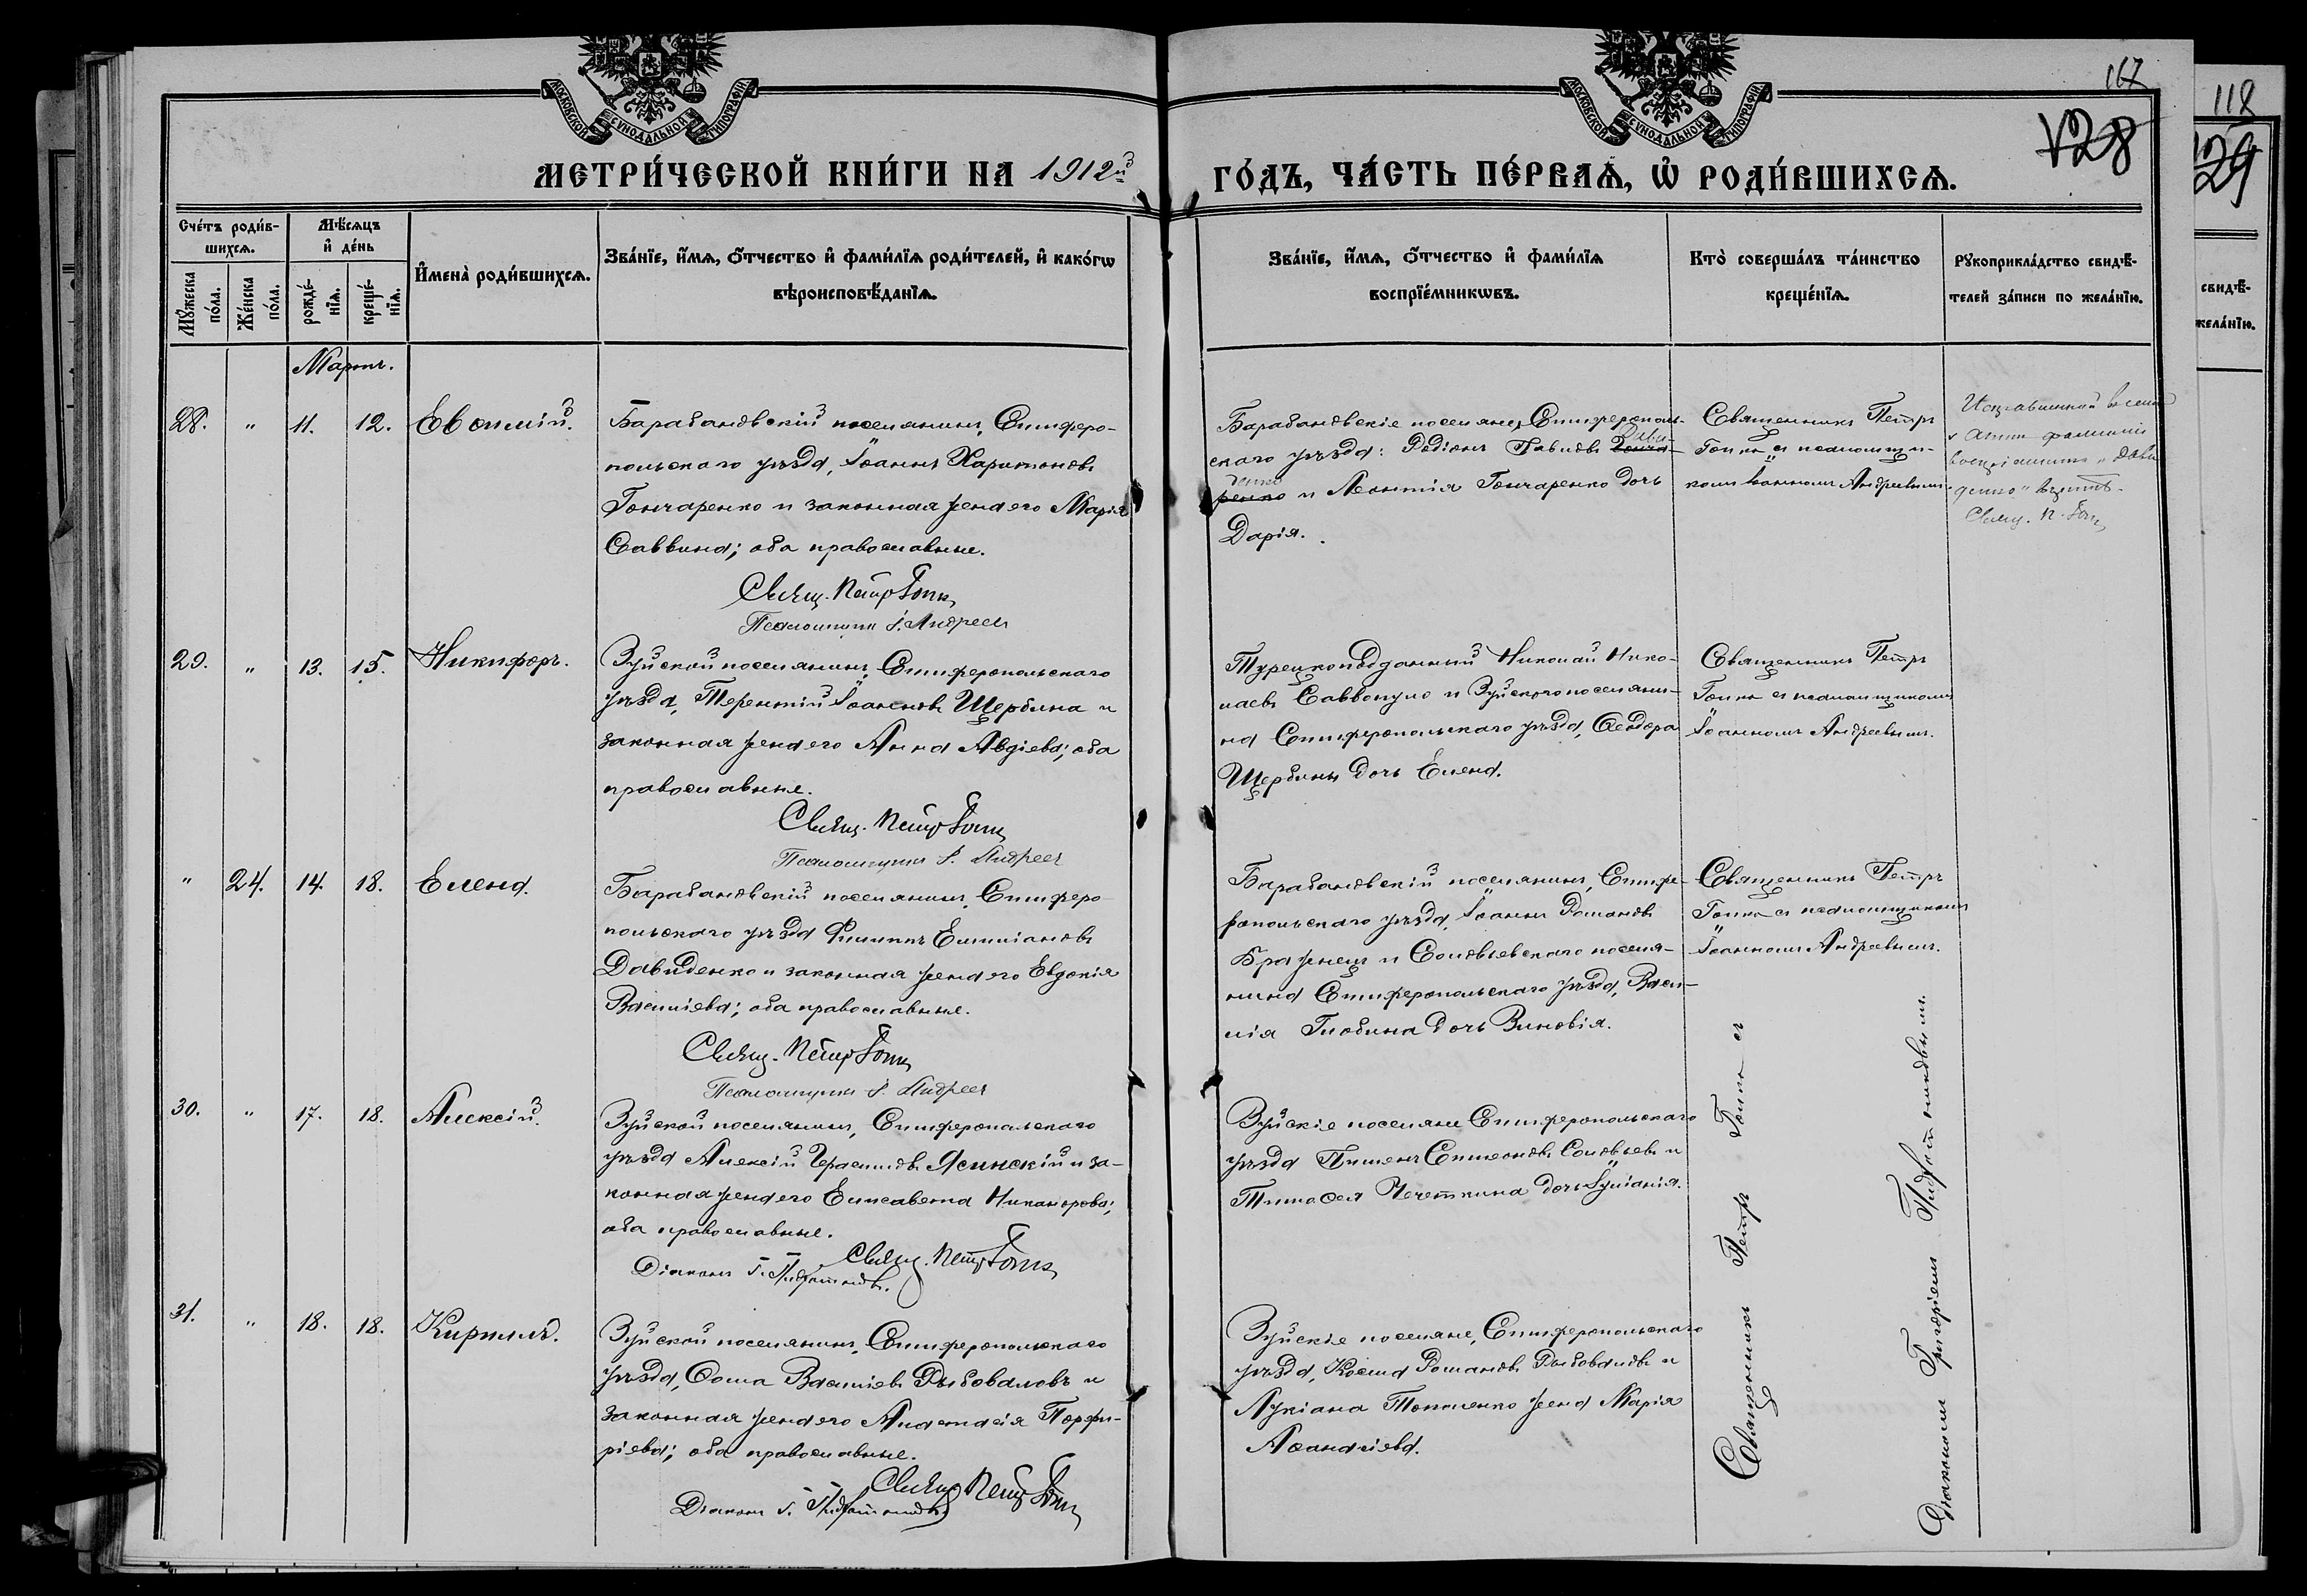 МОСКОВСКОЙ СѴНОДАЛЬНОЙ ТИПОГРАФІИ
МОСКОВСКОЙ СѴНОДАЛЬНОЙ ТИПОГРАФІИ
117
118
128
129
МЕТРИ́ЧЕСКОЙ КНИ́ГИ НА 1912й
ГО́ДЪ, ЧА́СТЬ ПЕ́РВАѦ, Ѡ҆ РОДИ́ВШИХСѦ.
Сче́тъ роди́в-
шихсѧ.
Мꙋ́жеска по́ла.
Же́нска по́ла.
Мѣ́сѧцъ
и҆ де́нь
рожде́-
нїѧ.
креще́-
нїѧ.
И҆мена̀ роди́вшихсѧ.
Зва́нїе, и҆́мѧ, о҆́тчество и҆ фами́лїѧ роди́телей, и҆ како́гѡ
вѣроисповѣ́данїѧ.
Зва́нїе, и҆́мѧ, о҆́тчество и҆ фами́лїѧ
воспрїе́мникѡвъ.
Кто̀ соверша́лъ та́инство
креще́нїѧ.
Рꙋкоприкла́дство свидѣ́-
телей за́писи по жела́нїю.
свидѣ́-
жела́нїю.
Мартъ.
28. " 11. 12. Евѳимій.
Барабановскій поселянинъ, Симферо-
польскаго уѣзда, Іоаннъ Харитоновъ
Гончаренко и законная жена его Марія
Саввина; оба православные.
Свящ. Петръ Гопка
Псаломщикъ І. Андреевъ
Барабановскіе поселяне, Симферополь-
скаго уѣзда: Родіонъ Павловъ Дави-
денко и Леонтія Гончаренко дочь
Дарія.
Священникъ Петръ
Гопка съ псаломщи-
комъ Іоанномъ Андреевымъ.
фамиліи
"Дави
денко" вѣрить.
Свящ. П. Гопка
29. " 13. 15. Никифоръ.
Зуйской поселянинъ, Симферопольскаго
уѣзда, Терентій Іоанновъ Щербина и
законная жена его Анна Авдіева; оба
православные.
Свящ. Петръ Гопка
Псаломщикъ І. Андреевъ
Турецкоподданный Николай Нико-
лаевъ Саввопуло и Зуйскаго поселяни-
на Симферопольскаго уѣзда, Ѳеодора
Щербины дочь Елена.
Священникъ Петръ
Гопка съ псаломщикомъ
Іоанномъ Андреевымъ.
" 24. 14. 18. Елена.
Барабановскій поселянинъ, Симферо-
польскаго уѣзда Филиппъ Емиліановъ
Давиденко и законная жена его Евдокія
Василіева; оба православные.
Свящ. Петръ Гопка
Псаломщикъ І. Андреевъ
Барабановскій поселянинъ, Симфе-
ропольскаго уѣзда, Іоаннъ Романовъ
Бражнец и Соловьевскаго поселя-
нина Симферопольскаго уѣзда, Васи-
лія Глобина дочь Зиновія.
Священникъ Петръ
Гопка съ псаломщикомъ
Іоанномъ Андреевымъ.
30. " 17. 18. Алексій.
Зуйской поселянинъ, Симферопольскаго
уѣзда Алексій Герасимовъ Ясинскій и за-
конная жена его Елисавета Никанорова;
оба православные.
Свящ. Петръ Гопка
Діаконъ Г.
Зуйскіе поселяне Симферопольскаго
уѣзда Пименъ Симеоновъ Соловьевъ и
Тимоѳея Чечеткина дочь Іуліанія.
31. " 18. 18. Кириллъ.
Зуйской поселянинъ, Симферопольскаго
уѣзда, Ѳома Василіевъ Рыбоваловъ и
законная жена его Анастасія Порфи-
ріева; оба православные.
Свящ. Петръ Гопка
Діаконъ Г.
Зуйскіе поселяне, Симферопольскаго
уѣзда, Косма Романовъ Рыбоваловъ и
Лукіана Тополенко жена Марія
Аѳанасіева.
Священникъ Петръ Гопка съ
Діакономъ Григоріемъ